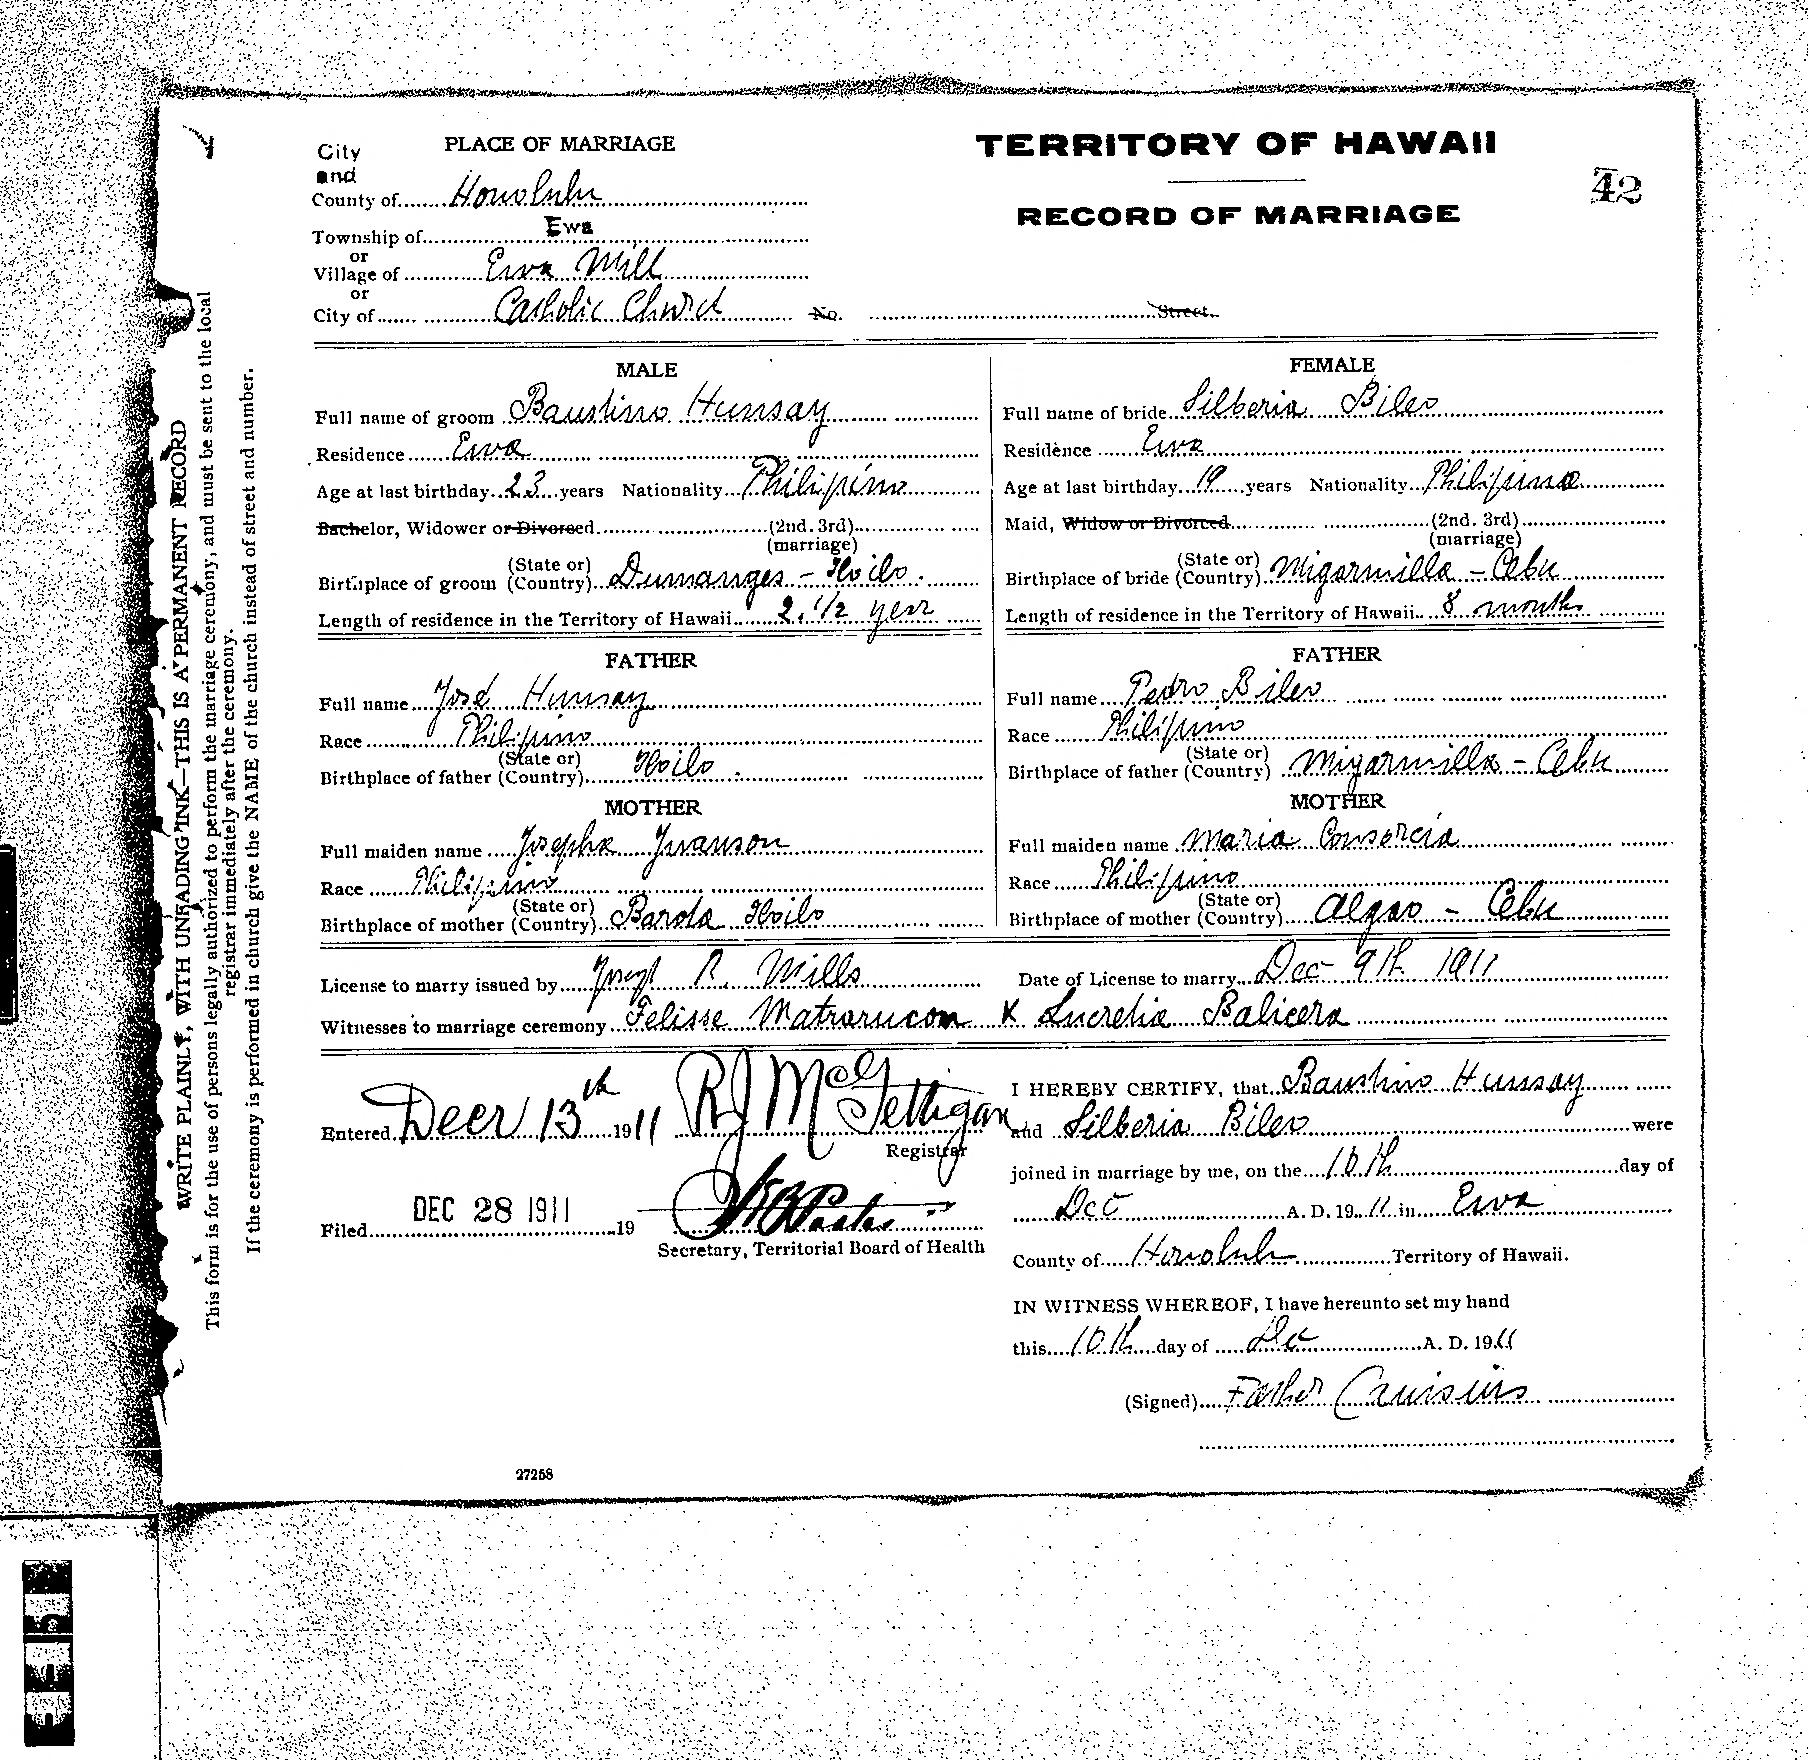 PLACE OF MARRIAGE
City
and
County of Honolulu
Township of Ewa
or
Village of Ewa Mill
or
City of Catholic Church No. Street.
TERRITORY OF HAWAII
RECORD OF MARRIAGE
42
MALE
Full name of groom Baustino Hunsay
Residence Ewa
Age at last birthday 23 years Nationality Philipino
Bachelor, Widower or Divorced (2nd. 3rd)
(marriage)
(State or)
Birthplace of groom (Country) Dumanges - Iloilo.
Length of residence in the Territory of Hawaii 2. 1/2 year
FEMALE
Full name of bride Silberia Bileo
Residence Ewa
Age at last birthday 19 years Nationality Philipino
Maid, Widow or Divorced (2nd. 3rd)
(marriage)
(State or)
Birthplace of bride (Country) Migarmilla - Cebu
Length of residence in the Territory of Hawaii 8 months
FATHER
Full name José Hunsay
Race Philipino
(State or)
Birthplace of father (Country) Iloilo.
MOTHER
Full maiden name Josepha Juanson
Race Philipino
(State or)
Birthplace of mother (Country) Barota Iloilo
FATHER
Full name Pedro Bileo
Race Philipino
(State or)
Birthplace of father (Country) Migarmilla - Cebu
MOTHER
Full maiden name Maria Consorcia
Race Philipino
(State or)
Birthplace of mother (Country) Algao - Cebu
License to marry issued by R. Mills Date of License to marry Dec 9th 1911
Witnesses to marriage ceremony Felisse & Lucretia Balicera
Entered Decr 13th 1911 R J McGettigan
Registrar
Filed DEC 28 1911 19
Secretary, Territorial Board of Health
I HEREBY CERTIFY, that Baustino Hunsay
and Silberia Bileo were
joined in marriage by me, on the 10th day of
Dec A. D. 1911 in Ewa
County of Honolulu Territory of Hawaii.
IN WITNESS WHEREOF, I have hereunto set my hand
this 10th day of Dec A. D. 1911
(Signed) Father
27258
WRITE PLAINLY, WITH UNFADING INK—THIS IS A PERMANENT RECORD
This form is for the use of persons legally authorized to perform the marriage ceremony, and must be sent to the local
registrar immediately after the ceremony.
If the ceremony is performed in church give the NAME of the church instead of street and number.